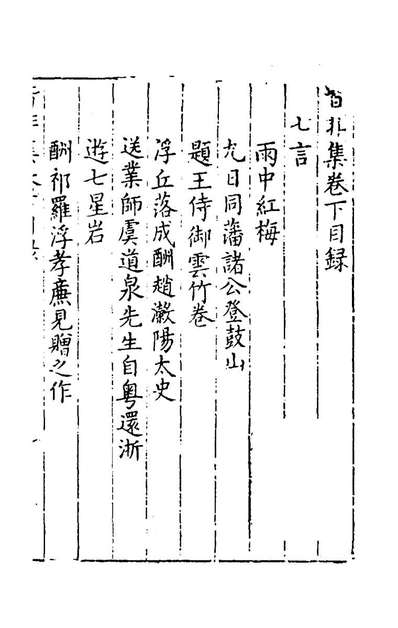 集卷下目録
七言
雨中紅梅
九日同藩諸公登鼓山
題王侍御雲竹卷
浮丘落成酬趙瀫陽太史
送業師虞道泉先生自粵還浙
遊七星岩
酬祁羅浮孝廉見贈之作